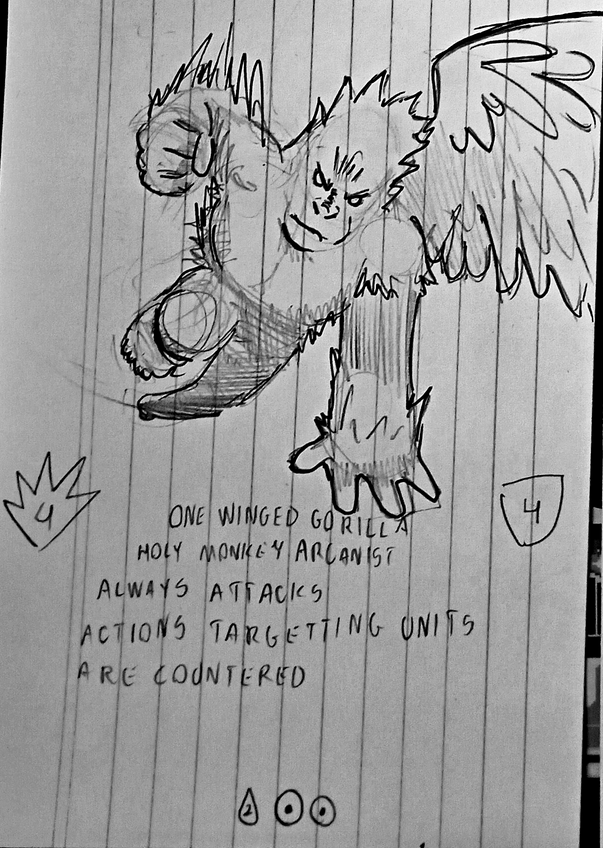 4
4
ONE WINGED GORILLA
HOLY MONKEY ARCANIST
ALWAYS ATTACKS
ACTIONS TARGETTING UNITS
ARE COUNTERED
2